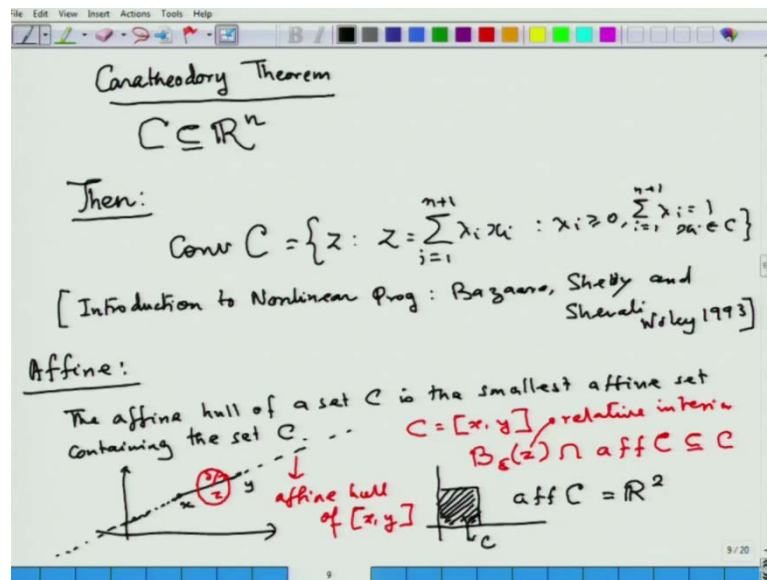 File Edit View Insert Actions Tools Help
Caratheodory Theorem
C ⊆ ℝⁿ
Then:
Conv C = {z : z = ∑_{i=1}^{n+1} λᵢ xᵢ : λᵢ ≥ 0, ∑_{i=1}^{n+1} λᵢ = 1
xᵢ ∈ C}
[Introduction to Nonlinear Prog : Bazaara, Shetty and
Sherali Wiley 1993]
Affine:
The affine hull of a set C is the smallest affine set
containing the set C.
C = [x, y] relative interior
B_δ(z) ∩ aff C ⊆ C
x z y
affine hull
of [x, y]
aff C = ℝ²
C
9/20
9